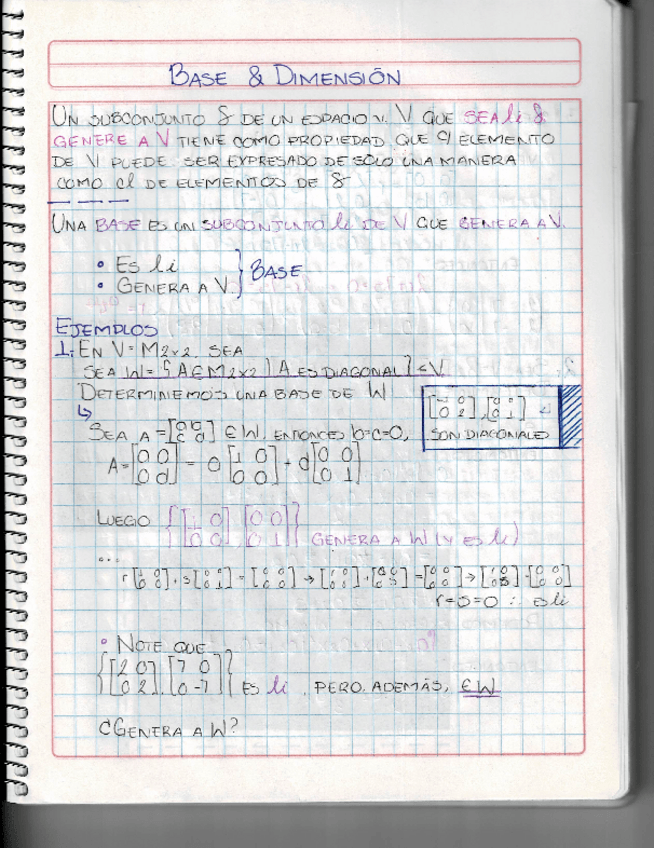 BASE & DIMENSIÓN
UN SUBCONJUNTO S DE UN ESPACIO V. V QUE SEA li &
GENERE A V TIENE COMO PROPIEDAD QUE C/ ELEMENTO
DE V PUEDE SER EXPRESADO DE SOLO UNA MANERA
COMO cl DE ELEMENTOS DE S
UNA BASE ES UN SUBCONJUNTO li DE V QUE GENERA A V.
• ES li
• GENERA A V } BASE
EJEMPLOS
1. EN V = M2x2. SEA
SEA W = { A ∈ M2x2 | A ES DIAGONAL } ≤ V
DETERMINEMOS UNA BASE DE W
SON DIAGONALES
SEA A = [a b; c d] ∈ W, ENTONCES b=c=0,
A = [a 0; 0 d] = a [1 0; 0 0] + d [0 0; 0 1]
LUEGO { [1 0; 0 0], [0 0; 0 1] } GENERA A W (Y ES li)
...
r [1 0; 0 0] + s [0 0; 0 1] = [0 0; 0 0] → [r 0; 0 0] + [0 0; 0 s] = [0 0; 0 0] →
r=s=0 ∴ es li
• NOTE QUE
{ [2 0; 0 2], [7 0; 0 -7] } ES li, PERO, ADEMÁS, ∈ W
¿GENERA A W?